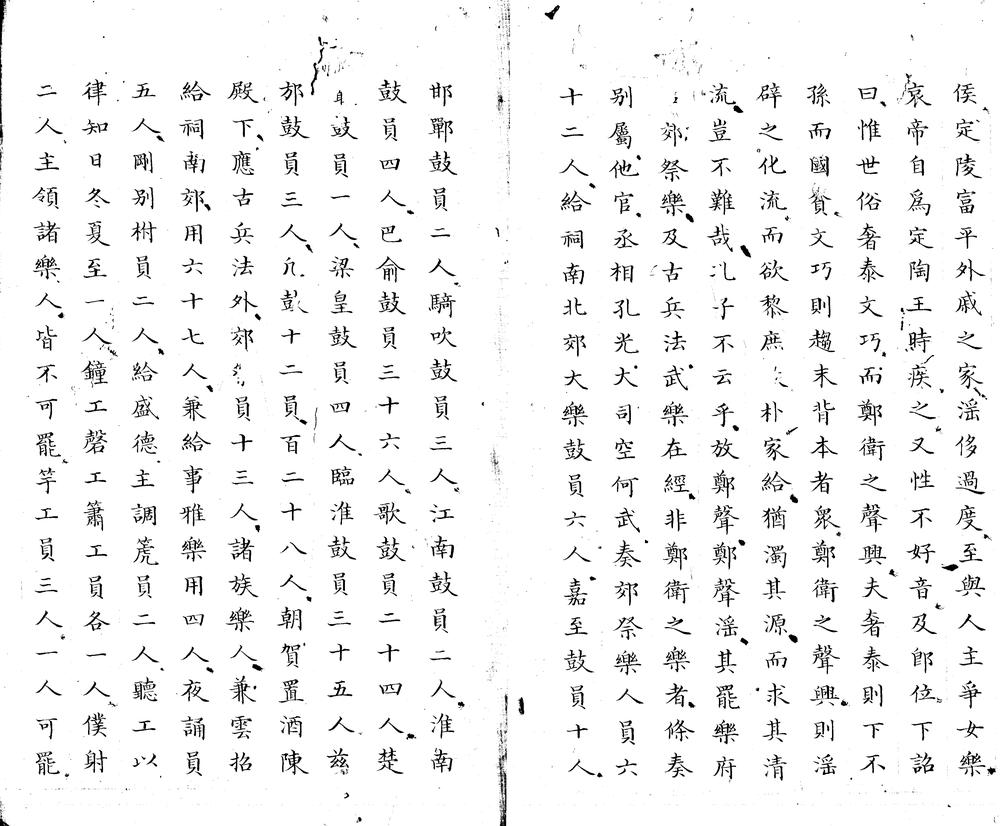 侯定陵富平外戚之家淫侈過度至與人主爭女樂
哀帝自爲定陶王時疾之又性不好音及卽位下詔
曰惟世俗奢泰文巧而鄭衛之聲興夫奢泰則下不
孫而國貧文巧則趨末背本者衆鄭衛之聲興則淫
辟之化流而欲黎庶朴家給猶濁其源而求其清
流豈不難哉孔子不云乎放鄭聲鄭聲淫其罷樂府
郊祭樂及古兵法武樂在經非鄭衛之樂者條奏
别屬他官丞相孔光大司空何武奏郊祭樂人員六
十二人給祠南北郊大樂鼓員六人嘉至鼓員十人
邯鄲鼓員二人騎吹鼓員三人江南鼓員二人淮南
鼓員四人巴俞鼓員三十六人歌鼓員二十四人楚
鼓員一人梁皇鼓員四人臨淮鼓員三十五人茲
邡鼓員三人凡鼓十二員百二十八人朝賀置酒陳
殿下應古兵法外郊祭員十三人諸族樂人兼雲招
給祠南郊用六十七人兼給事雅樂用四人夜誦員
五人剛别柎員二人給盛德主調箎員二人聽工以
律知日冬夏至一人鐘工磬工簫工員各一人僕射
二人主領諸樂人皆不可罷竽工員三人一人可罷